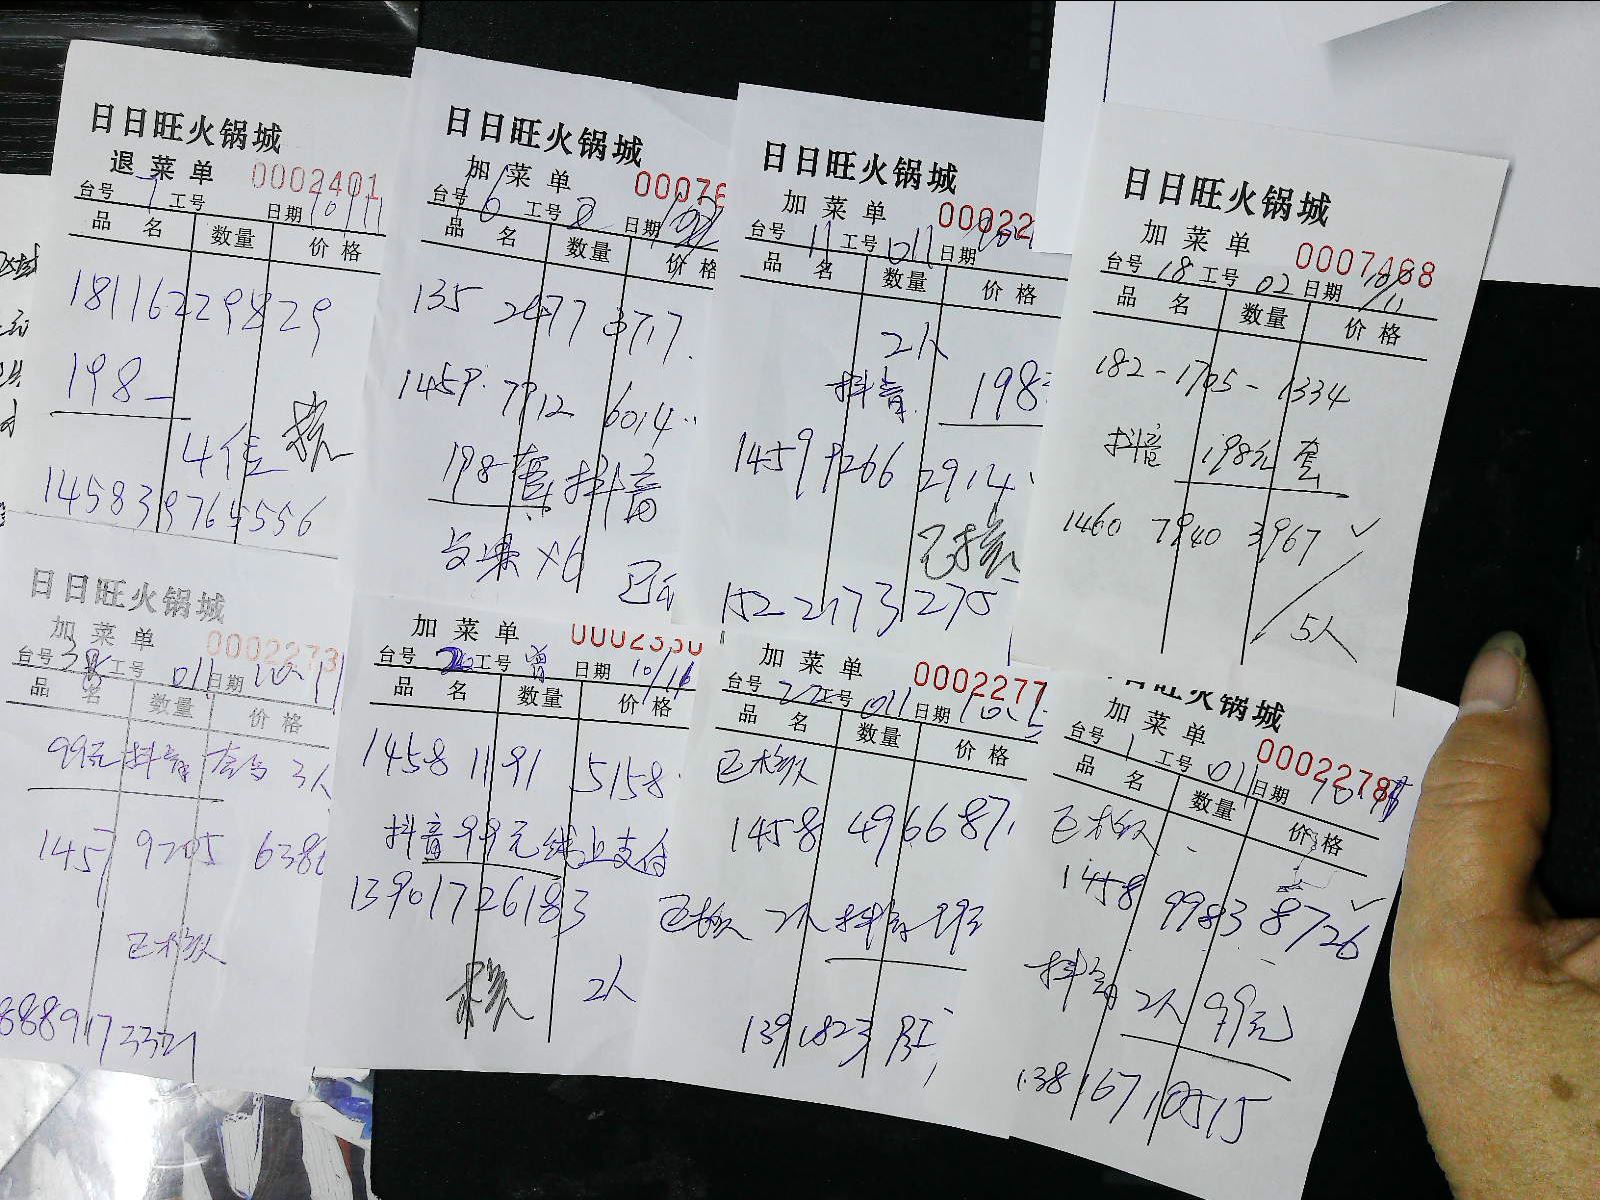 日日旺火锅城
退菜单 0002401
台号 1 工号 日期 10/11
品名 数量 价格
18116229829
198
4位 核
145839765556
日日旺火锅城
加菜单 00076
台号 6 工号 日期
品名 数量 价格
135 2477 3717
1459 7912 6014
198套 抖音
×6
日日旺火锅城
加菜单 00022
台号 11 工号 011 日期
品名 数量 价格
2人
抖音 198
1459 9266 2914
已核
152 2173 275
日日旺火锅城
加菜单 0007468
台号 18 工号 02 日期 10/11
品名 数量 价格
182-1705-1334
抖音 198元 套
1460 7940 3967 ✓
5人
日日旺火锅城
加菜单 0002273
台号 工号 011 日期
品名 数量 价格
99元 抖音 套台 3人
145 9205 638
已核队
88891733
加菜单 0002330
台号 工号 曾 日期 10/11
品名 数量 价格
1458 1191 5158
抖音99元线上支付
13901726183
核 2人
加菜单 0002277
台号 22 工号 011 日期
品名 数量 价格
已核队
1458 4966 87
已核队 2人 抖音 99
日日旺火锅城
加菜单 000227
台号 1 工号 011 日期
品名 数量 价格
已核队
1458 9983 8726 ✓
抖音 2人 99元
138 1671 0515